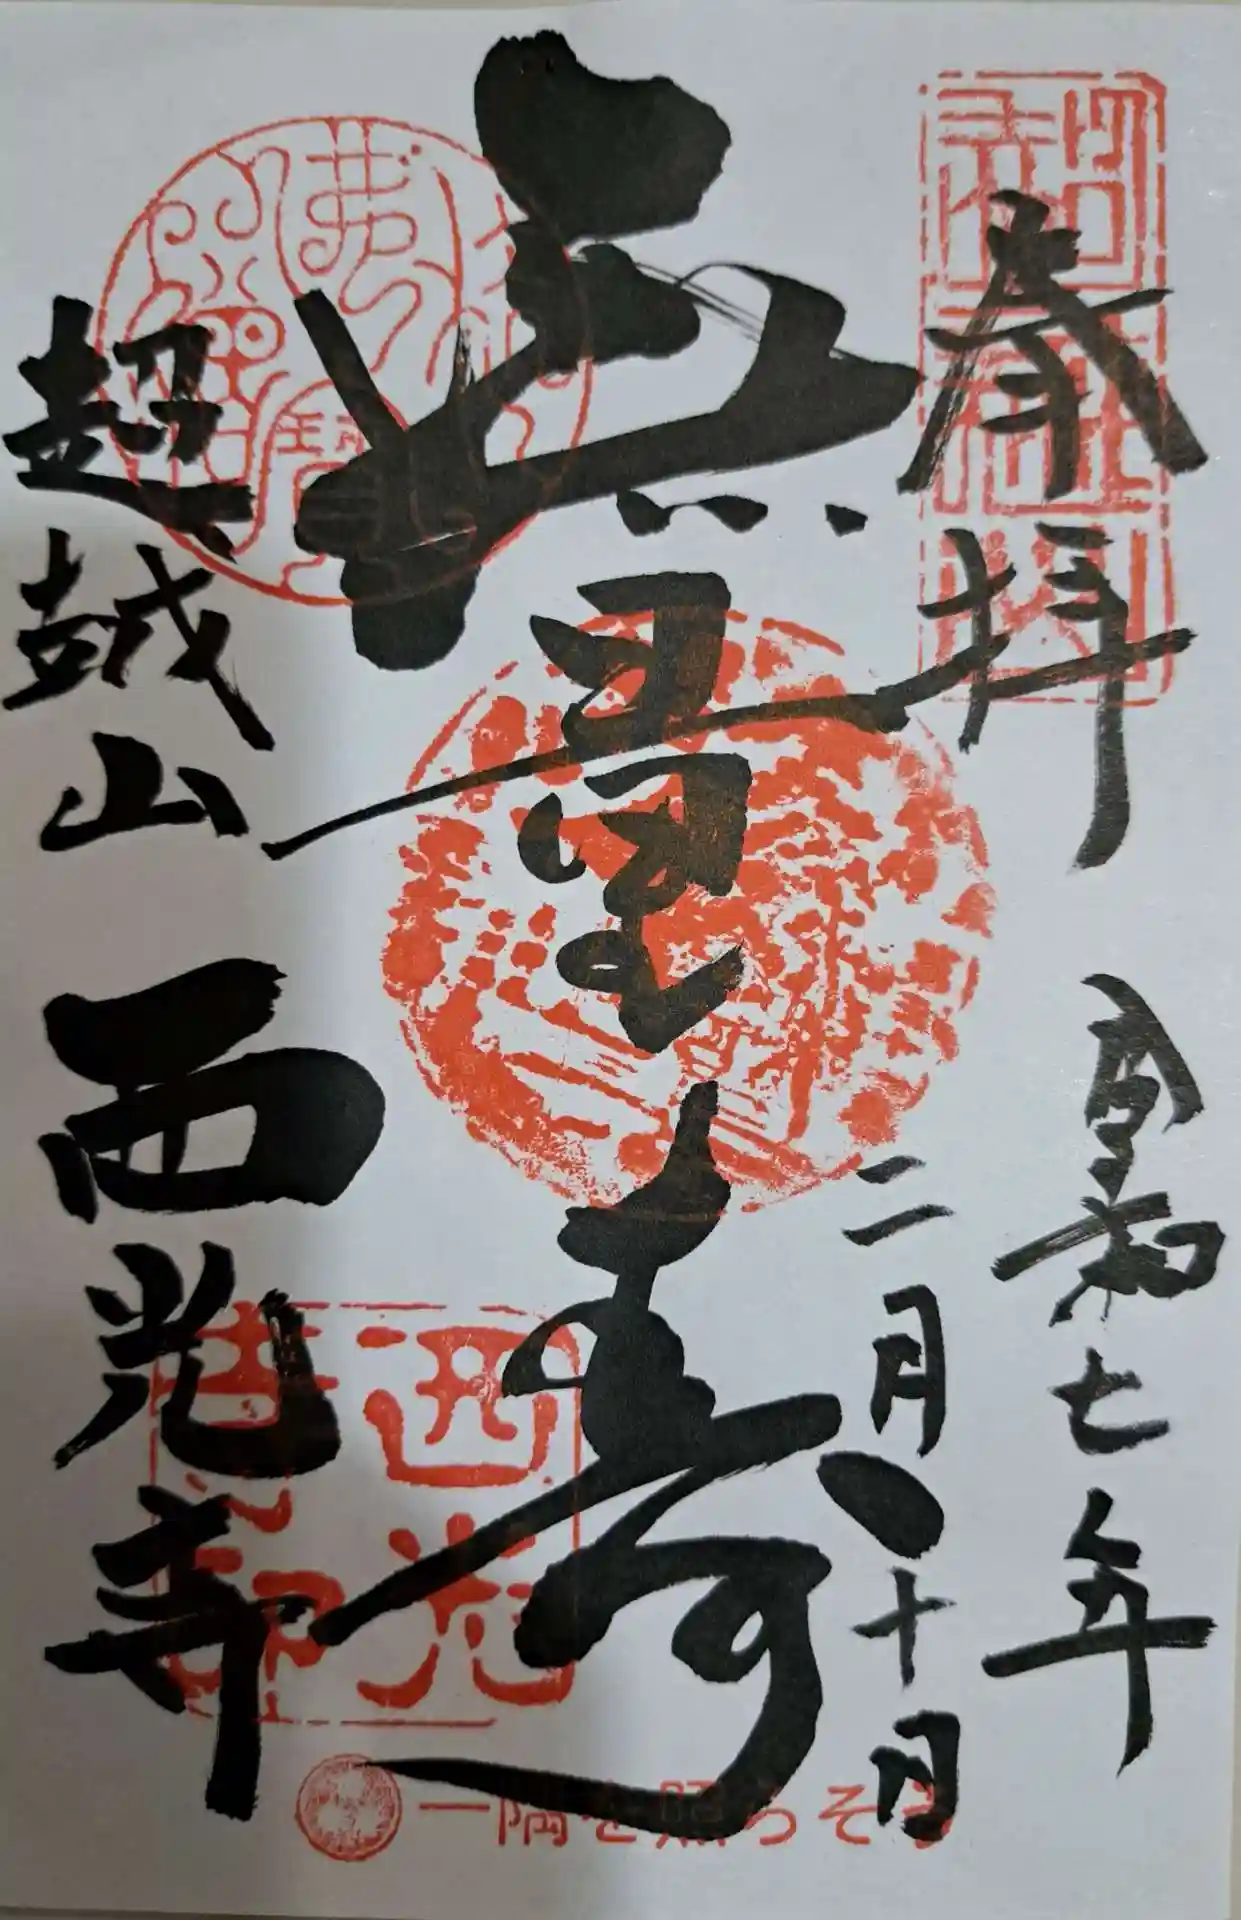 奉拝
令和七年
二月二十日
無量寿
超越山
西光寺
西光
寺之
印
一隅を照らそう